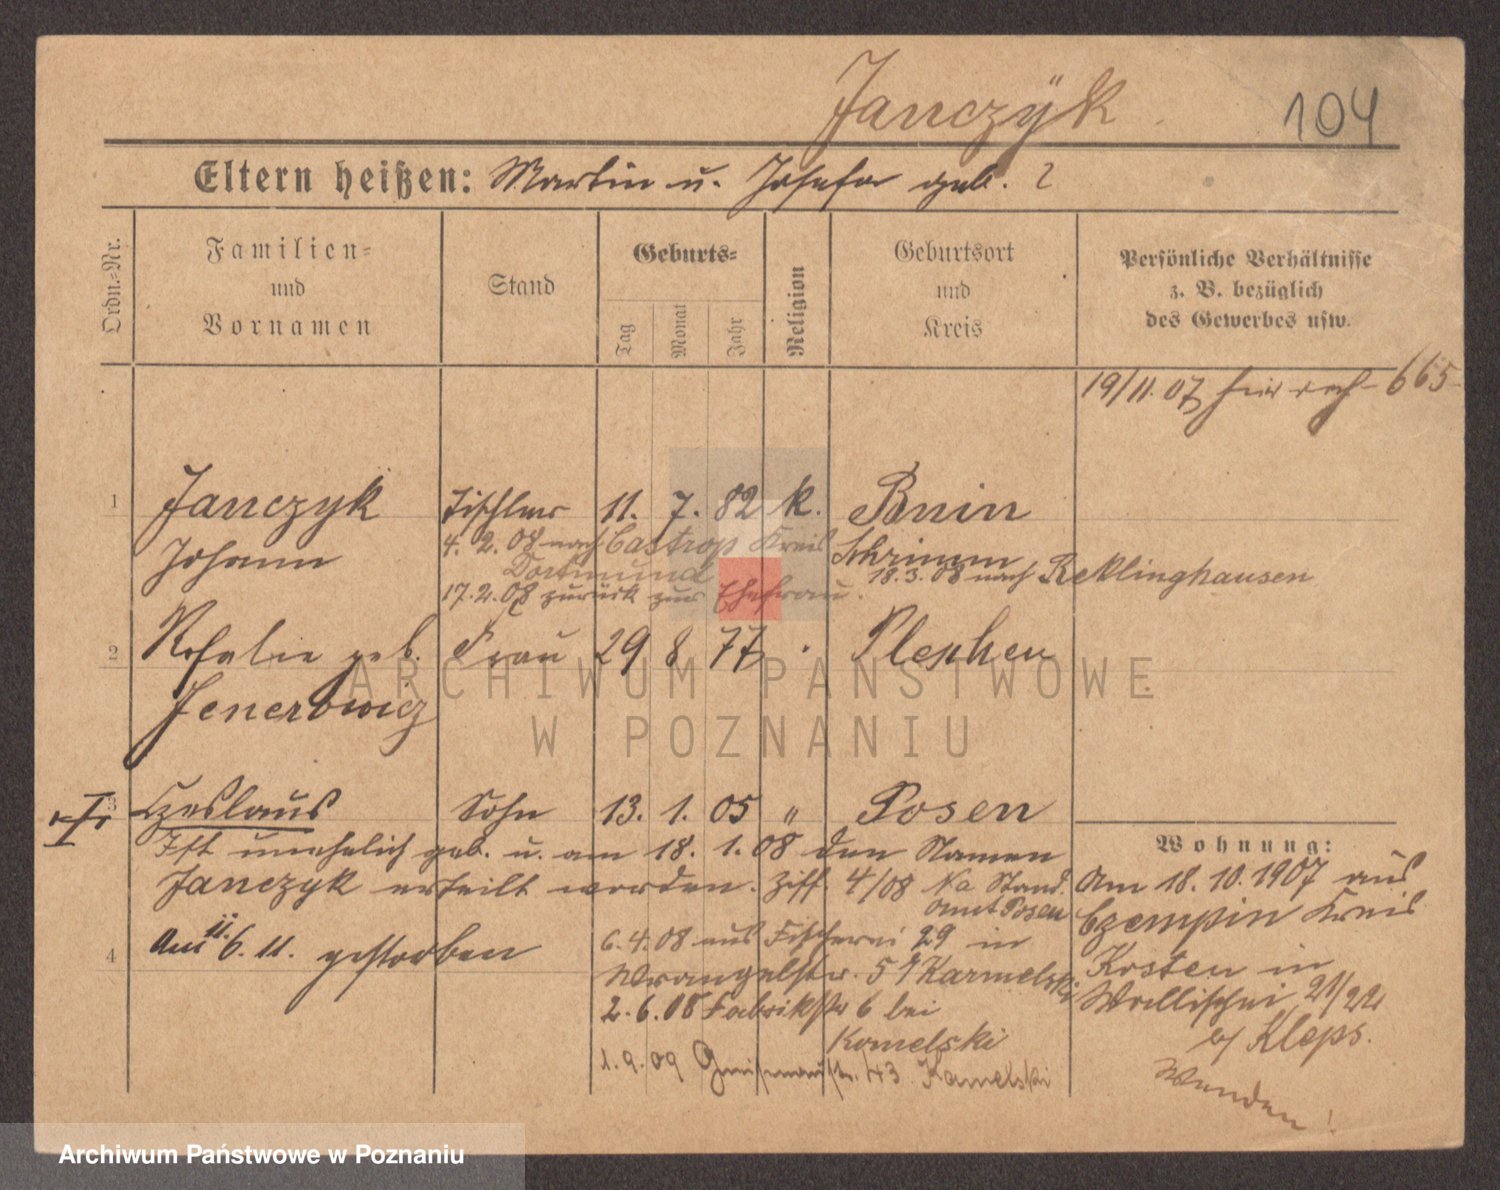 Janczÿk
104
Eltern heißen: Martin u. Josefa geb. ?
Ordn.-Nr.
Familien-
und
Vornamen
Stand
Geburts-
Tag
Monat
Jahr
Religion
Geburtsort
und
Kreis
Persönliche Verhältnisse
z. B. bezüglich
des Gewerbes usw.
19/11. 07 665
1 Janczyk Tischler 11. 7. 82 k. Bnin
Johann 4. 2. 08 nach Castrop Kreis Schrimm
Dortmund 18. 3. 08 nach Reklinghausen
17. 2. 08 zurück zur Ehefrau.
2 Rosalie geb. Frau 29 8 77 Pleschen
Jenerowicz
3 Czeslaus Sohn 13. 1. 05 " Posen
Ist unehelich geb. u. am 18. 1. 08 den Namen
Janczyk erteilt worden. Ziff. 4/08 Stand.
amt Posen
4 Am 6. 11. gestorben
6. 4. 08 aus Fischerei 29 in
Wrangelstr. 5 Karmelski
2. 6. 08 Fabrikstr 6 bei
Komelski
1. 9. 09 Gneisenaustr. 43 Kamelski
Wohnung:
Am 18. 10. 1907 aus
Czempin Kreis
Kosten in
Wallischei 21/22
b/ Kleps.
Wenden!
ARCHIWUM PAŃSTWOWE
W POZNANIU
Archiwum Państwowe w Poznaniu